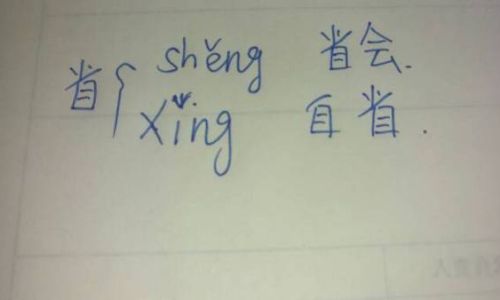 省 { shěng 省会.
xǐng 自省.